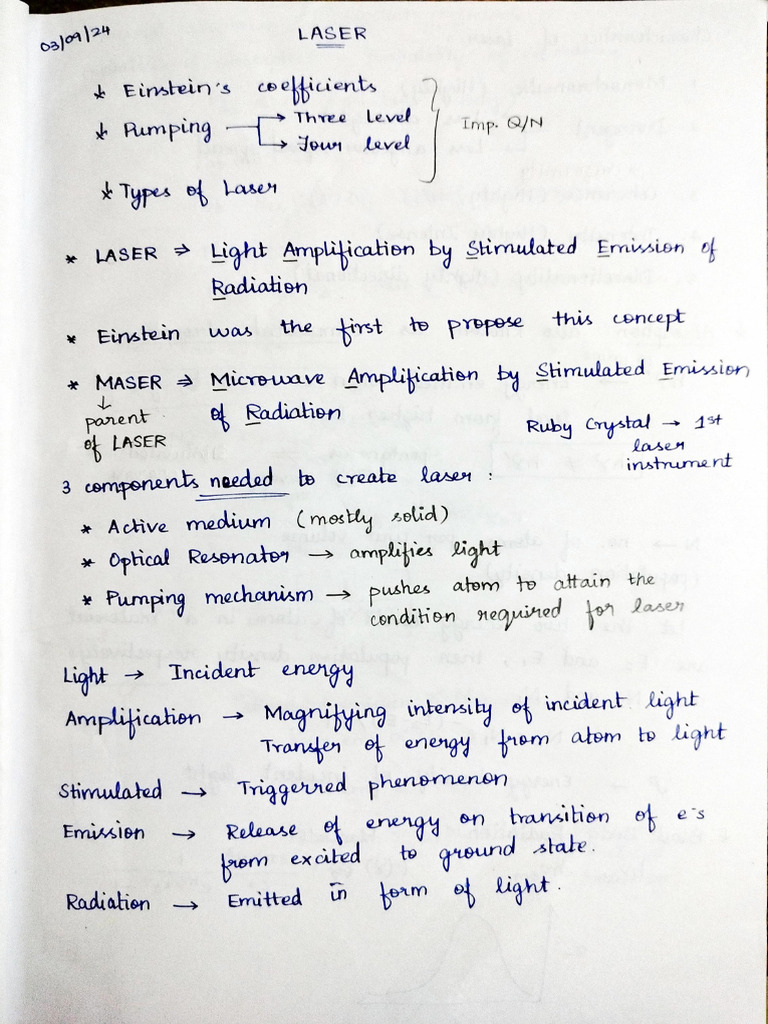 03/09/24
LASER
* Einstein's coefficients
* Pumping → Three level
→ Four level
Imp. Q/N
* Types of Laser
* LASER ⇒ Light Amplification by Stimulated Emission of
Radiation
* Einstein was the first to propose this concept
* MASER ⇒ Microwave Amplification by Stimulated Emission
of Radiation
↓
parent
of LASER
Ruby Crystal → 1st
laser
instrument
3 components needed to create laser :
* Active medium (mostly solid)
* Optical Resonator → amplifies light
* Pumping mechanism → pushes atom to attain the
condition required for laser
Light → Incident energy
Amplification → Magnifying intensity of incident light
Transfer of energy from atom to light
Stimulated → Triggerred phenomenon
Emission → Release of energy on transition of e-s
from excited to ground state.
Radiation → Emitted in form of light.